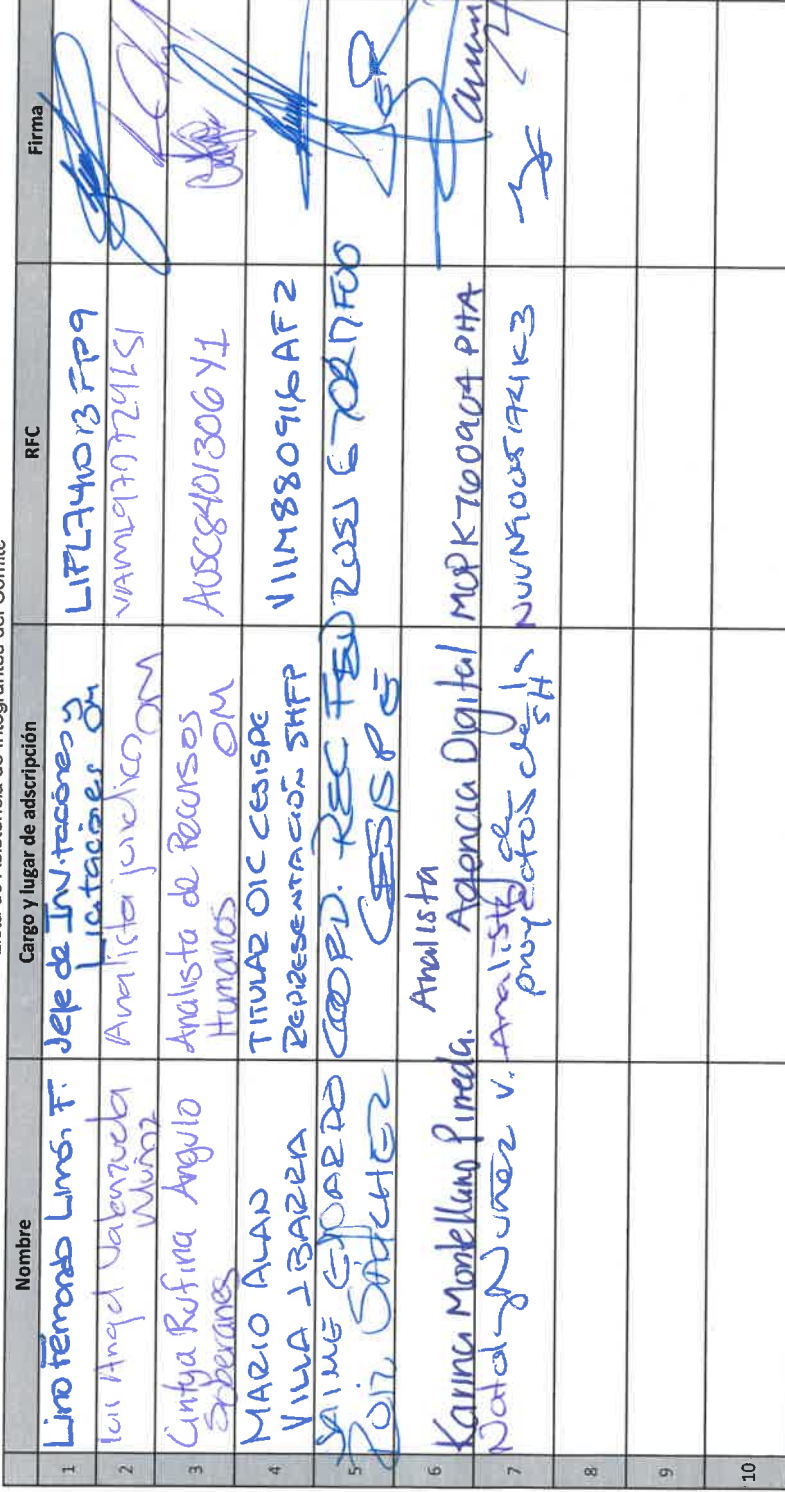 Lista de Asistencia de Integrantes del Comité
Nombre Cargo y lugar de adscripción RFC Firma
1 Lino Fernando Limón F. Jefe de Invitaciones y
Licitaciones OM
2 Luis Angel Valenzuela
Muñoz
Analista jurídico OM
3 Cintya Rufina Angulo
Soberanes
Analista de Recursos
Humanos OM
AUSC8401306Y1
4 MARIO ALAN
VILLA IBARRA
TITULAR OIC CESISPE
REPRESENTACIÓN SHFP
VIIM880916AF2
5 JAIME EDUARDO
SÁNCHEZ
COORD. REC FED
CESISPE
6 Karina Montellano Pineda. Analista
Agencia Digital
MOPK760904PHA
7 Nataly Nuñez V. Analista de
proyectos de la
SH
8
9
10